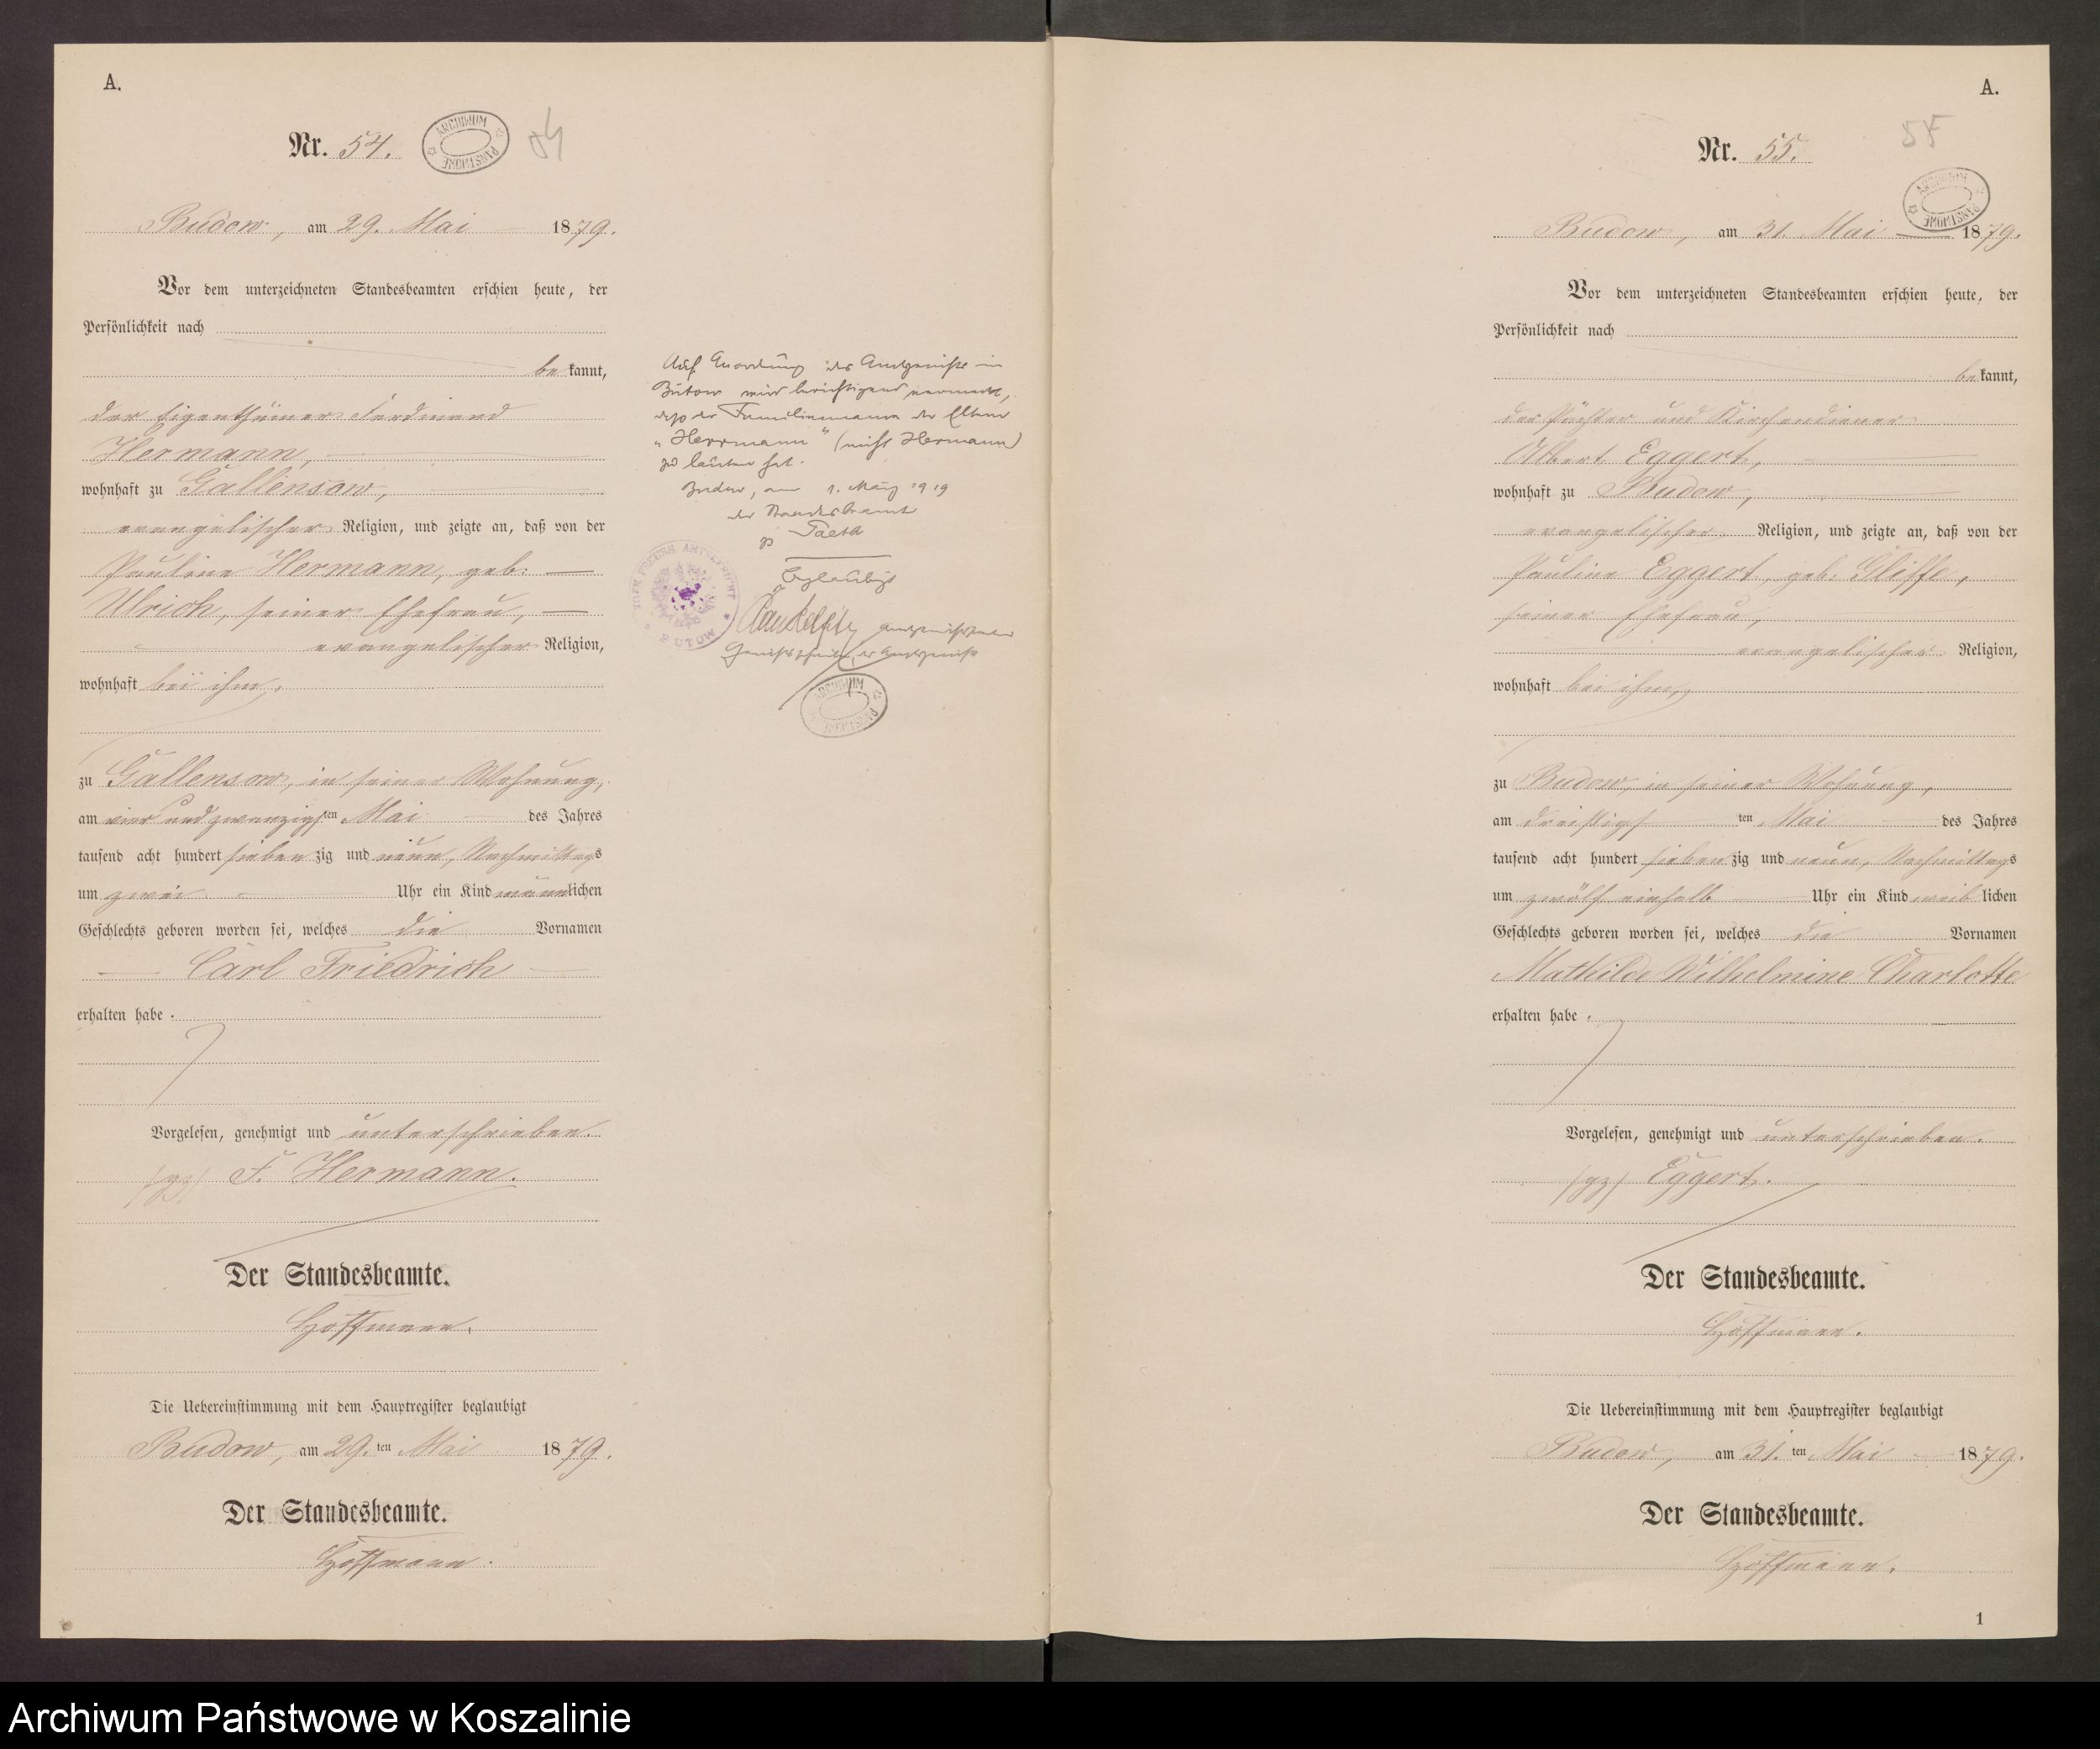 A.
Nr. 54.
54
ARCHIWUM PAŃSTWOWE
Budow, am 29. Mai 1879.
Vor dem unterzeichneten Standesbeamten erschien heute, der
Persönlichkeit nach
bekannt,
der Eigenthümer Ferdinand
Hermann,
wohnhaft zu Gallensow,
evangelischer Religion, und zeigte an, daß von der
Pauline Hermann, geb:
Ulrich, seiner Ehefrau,
evangelischer Religion,
wohnhaft bei ihm,
zu Gallensow, in seiner Wohnung,
am vier und zwanzigsten Mai des Jahres
tausend acht hundert siebenzig und neun, Nachmittags
um zwei Uhr ein Kind männlichen
Geschlechts geboren worden sei, welches die Vornamen
Carl Friedrich
erhalten habe.
Vorgelesen, genehmigt und unterschrieben.
(gz) F. Hermann.
Der Standesbeamte.
Hoffmann.
Die Uebereinstimmung mit dem Hauptregister beglaubigt
Budow, am 29.ten Mai 1879.
Der Standesbeamte.
Hoffmann.
Auf Anordnung des Amtsgerichts in
Bütow wird berichtigend vermerkt,
daß der Familienname der Eltern
"Herrmann" (nicht Hermann)
zu lauten hat.
Budow, am 1. März 1919
der Standesbeamte
gz
Beglaubigt
AMTSGERICHT
BÜTOW
Gerichtsschreiber des Amtsgerichts
ARCHIWUM PAŃSTWOWE
A.
Nr. 55.
55
ARCHIWUM PAŃSTWOWE
Budow, am 31. Mai 1879.
Vor dem unterzeichneten Standesbeamten erschien heute, der
Persönlichkeit nach
bekannt,
der Pächter und Kirchendiener
Albert Eggert,
wohnhaft zu Budow,
evangelischer Religion, und zeigte an, daß von der
Pauline Eggert, geb: Gliffe,
seiner Ehefrau,
evangelischer Religion,
wohnhaft bei ihm,
zu Budow, in seiner Wohnung,
am dreißigsten Mai des Jahres
tausend acht hundert siebenzig und neun, Nachmittags
um zwölf einhalb Uhr ein Kind weiblichen
Geschlechts geboren worden sei, welches die Vornamen
Mathilde Wilhelmine Charlotte
erhalten habe.
Vorgelesen, genehmigt und unterschrieben.
(gz) Eggert.
Der Standesbeamte.
Hoffmann.
Die Uebereinstimmung mit dem Hauptregister beglaubigt
Budow, am 31.ten Mai 1879.
Der Standesbeamte.
Hoffmann.
1
Archiwum Państwowe w Koszalinie